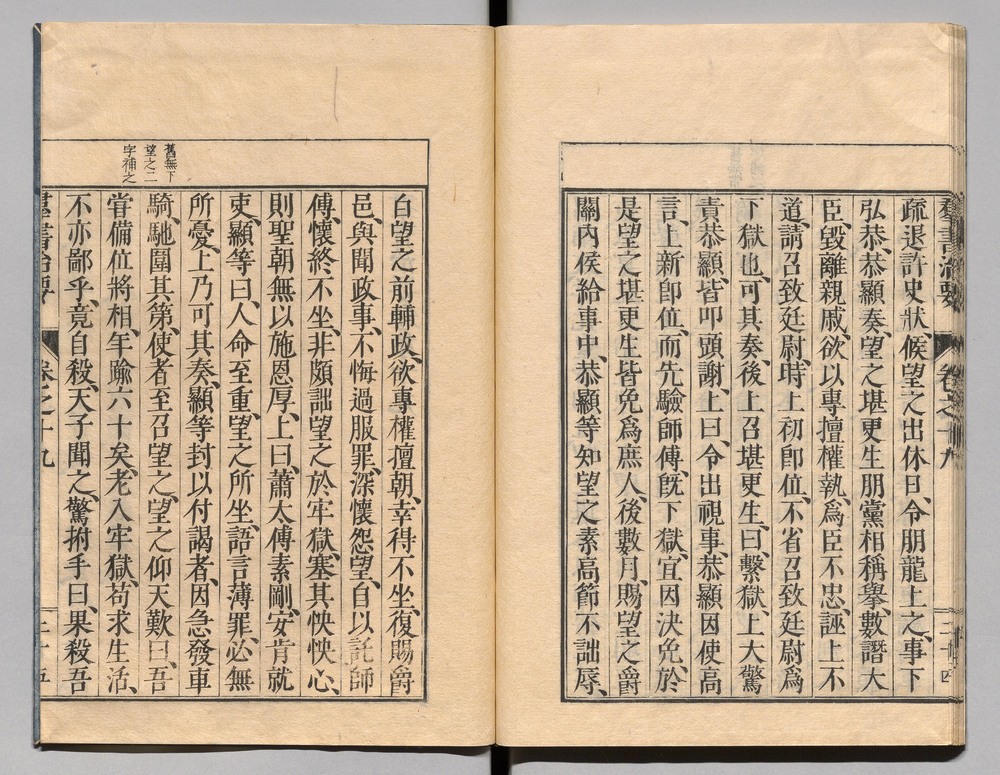 羣書治要 卷之十九 二十四
疏退許史狀、候望之出休日、令朋龍上之、事下
弘恭、恭顯奏、望之堪更生朋黨相稱舉、數譖大
臣、毀離親戚、欲以專擅權執、爲臣不忠、誣上不
道、請召致廷尉、時上初卽位、不省召致廷尉爲
下獄也、可其奏、後上召堪更生、曰、繫獄、上大驚
責恭顯、皆叩頭謝、上曰、令出視事、恭顯因使高
言、上新卽位、而先驗師傅、旣下獄、宜因決免、於
是望之堪更生皆免爲庶人、後數月、賜望之爵
關內侯給事中、恭顯等知望之素高節不詘辱、
白望之前輔政、欲專權擅朝、幸得不坐、復賜爵
邑、與聞政事、不悔過服罪、深懷怨望、自以託師
傅、懷終不坐、非頗詘望之於牢獄、塞其怏怏心、
則聖朝無以施恩厚、上曰、蕭太傅素剛、安肯就
吏、顯等曰、人命至重、望之所坐、語言薄罪、必無
所憂、上乃可其奏、顯等封以付謁者、因急發車
騎、馳圍其第、使者至召望之、望之仰天歎曰、吾
嘗備位將相、年踰六十矣、老入牢獄、苟求生活、
不亦鄙乎、竟自殺、天子聞之、驚拊手曰、果殺吾
舊無下
望之二
字補之
羣書治要 卷之十九 二十五